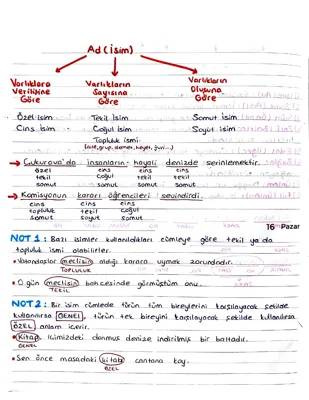 Ad (isim)
Varlıklara Varlıkların Varlıkların
Verilişine Sayısına Oluşuna
Göre Göre Göre
Özel isim Tekil isim Somut isim
Cins isim Çoğul isim Soyut isim
Topluluk ismi
→ Çukurova'da insanların hayali denizde serinlemektir.
özel cins cins cins
tekil çoğul tekil tekil
somut somut soyut somut
→ Komisyonun kararı öğrencileri sevindirdi.
cins cins cins
topluluk tekil çoğul
somut soyut somut
16 Pazar
NOT 1: Bazı isimler kullanıldıkları cümleye göre tekil ya da
topluluk ismi olabilirler.
• Vatandaşlar meclisin aldığı karara uymak zorundadır.
TOPLULUK
• O gün meclisin bahçesinde görmüştüm onu.
TEKİL
NOT 2: Bir isim cümlede türün tüm bireylerini karşılayacak şekilde
kullanılırsa GENEL, türün tek bireyini karşılayacak şekilde kullanılırsa
ÖZEL anlam içerir.
• Kitap, içimizdeki donmuş denize indirilmiş bir baltadır.
GENEL
• Sen önce masadaki kitabı çantana koy.
ÖZEL